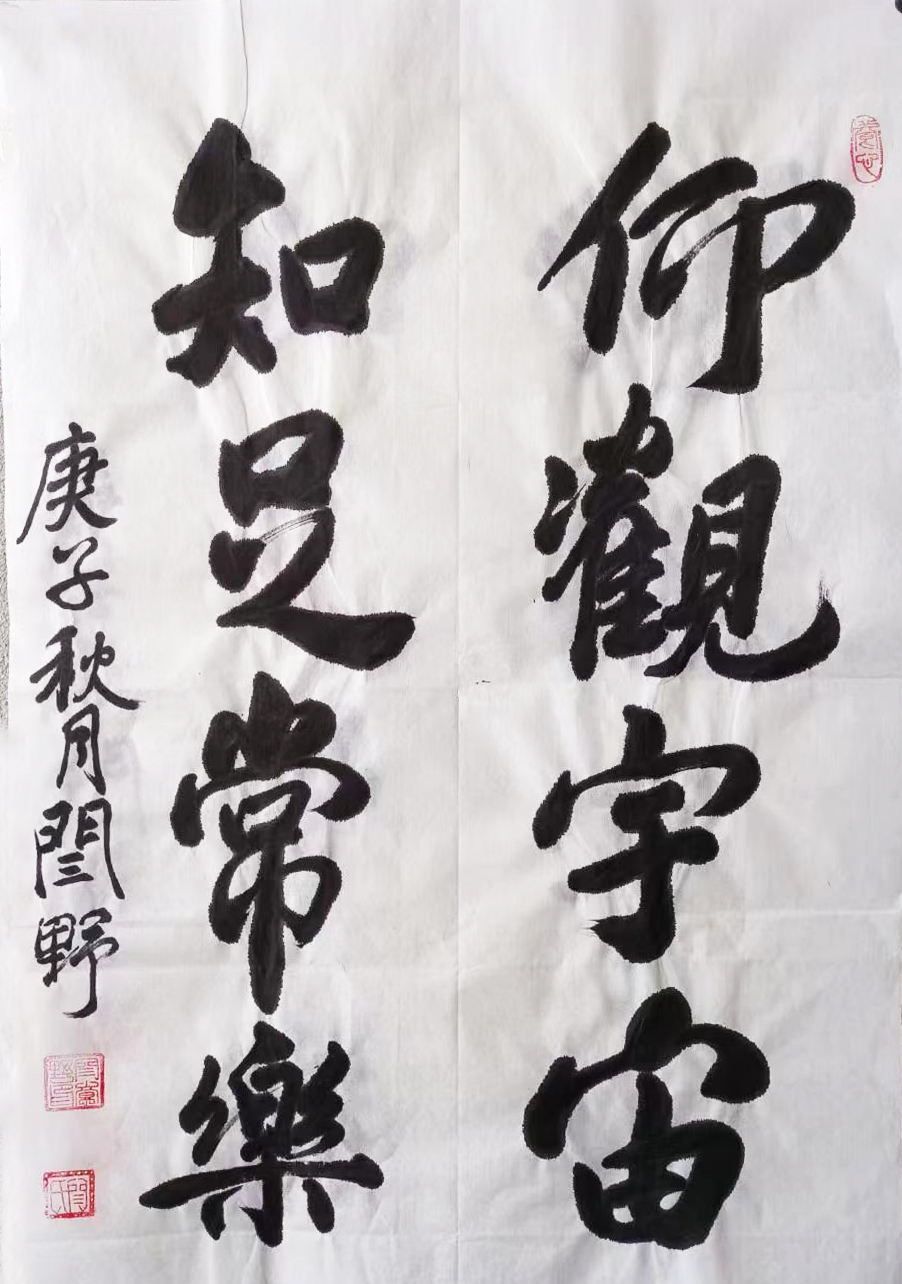 仰觀宇宙
知足常樂
庚子秋月閆野